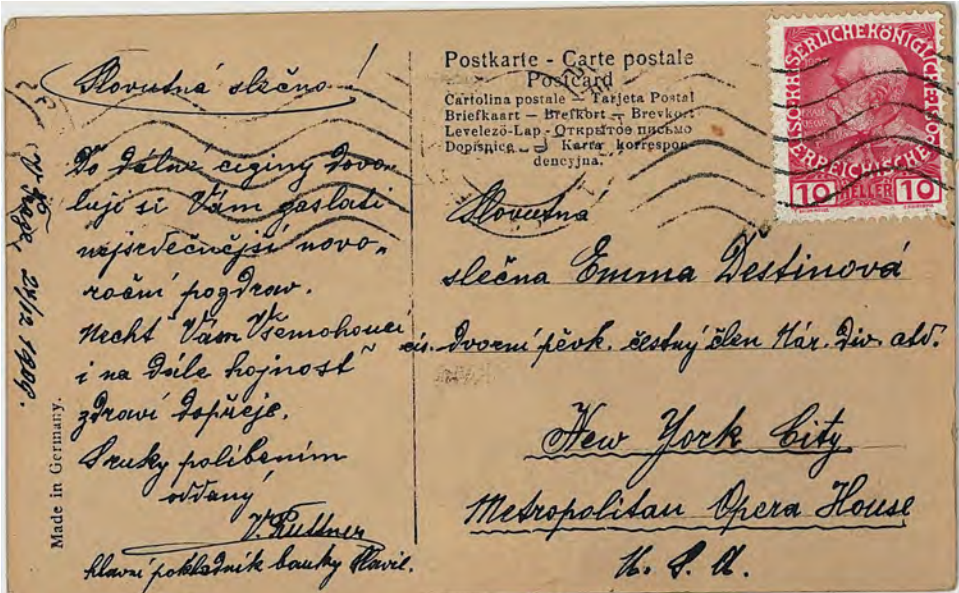 Slovutná slečno!
Do dálné ciziny dovo-
luji si Vám zaslati
nejsrdečnější novo-
roční pozdrav.
Nechť Vám Všemohoucí
i na dále hojnost
zdraví dopřeje.
S ruky políbením
oddaný
V. Puttner
hlavní pokladník banky Slavie.
V Praze, 24/12 1909.
Made in Germany.
Postkarte - Carte postale
Postcard
Cartolina postale - Tarjeta Postal
Briefkaart - Brefkort - Brevkort
Levelező-Lap - Открытое письмо
Dopisnice - Karta korrespon-
dencyjna.
KAISERLICHEKÖNIGLICHE
ÖSTERREICHISCHE POST
10 HELLER 10
Slovutna
slečna Emma Destinová
cís. dvorní pěvk. čestný člen Nár. Div. atd.
New York City
Metropolitan Opera House
U. S. A.